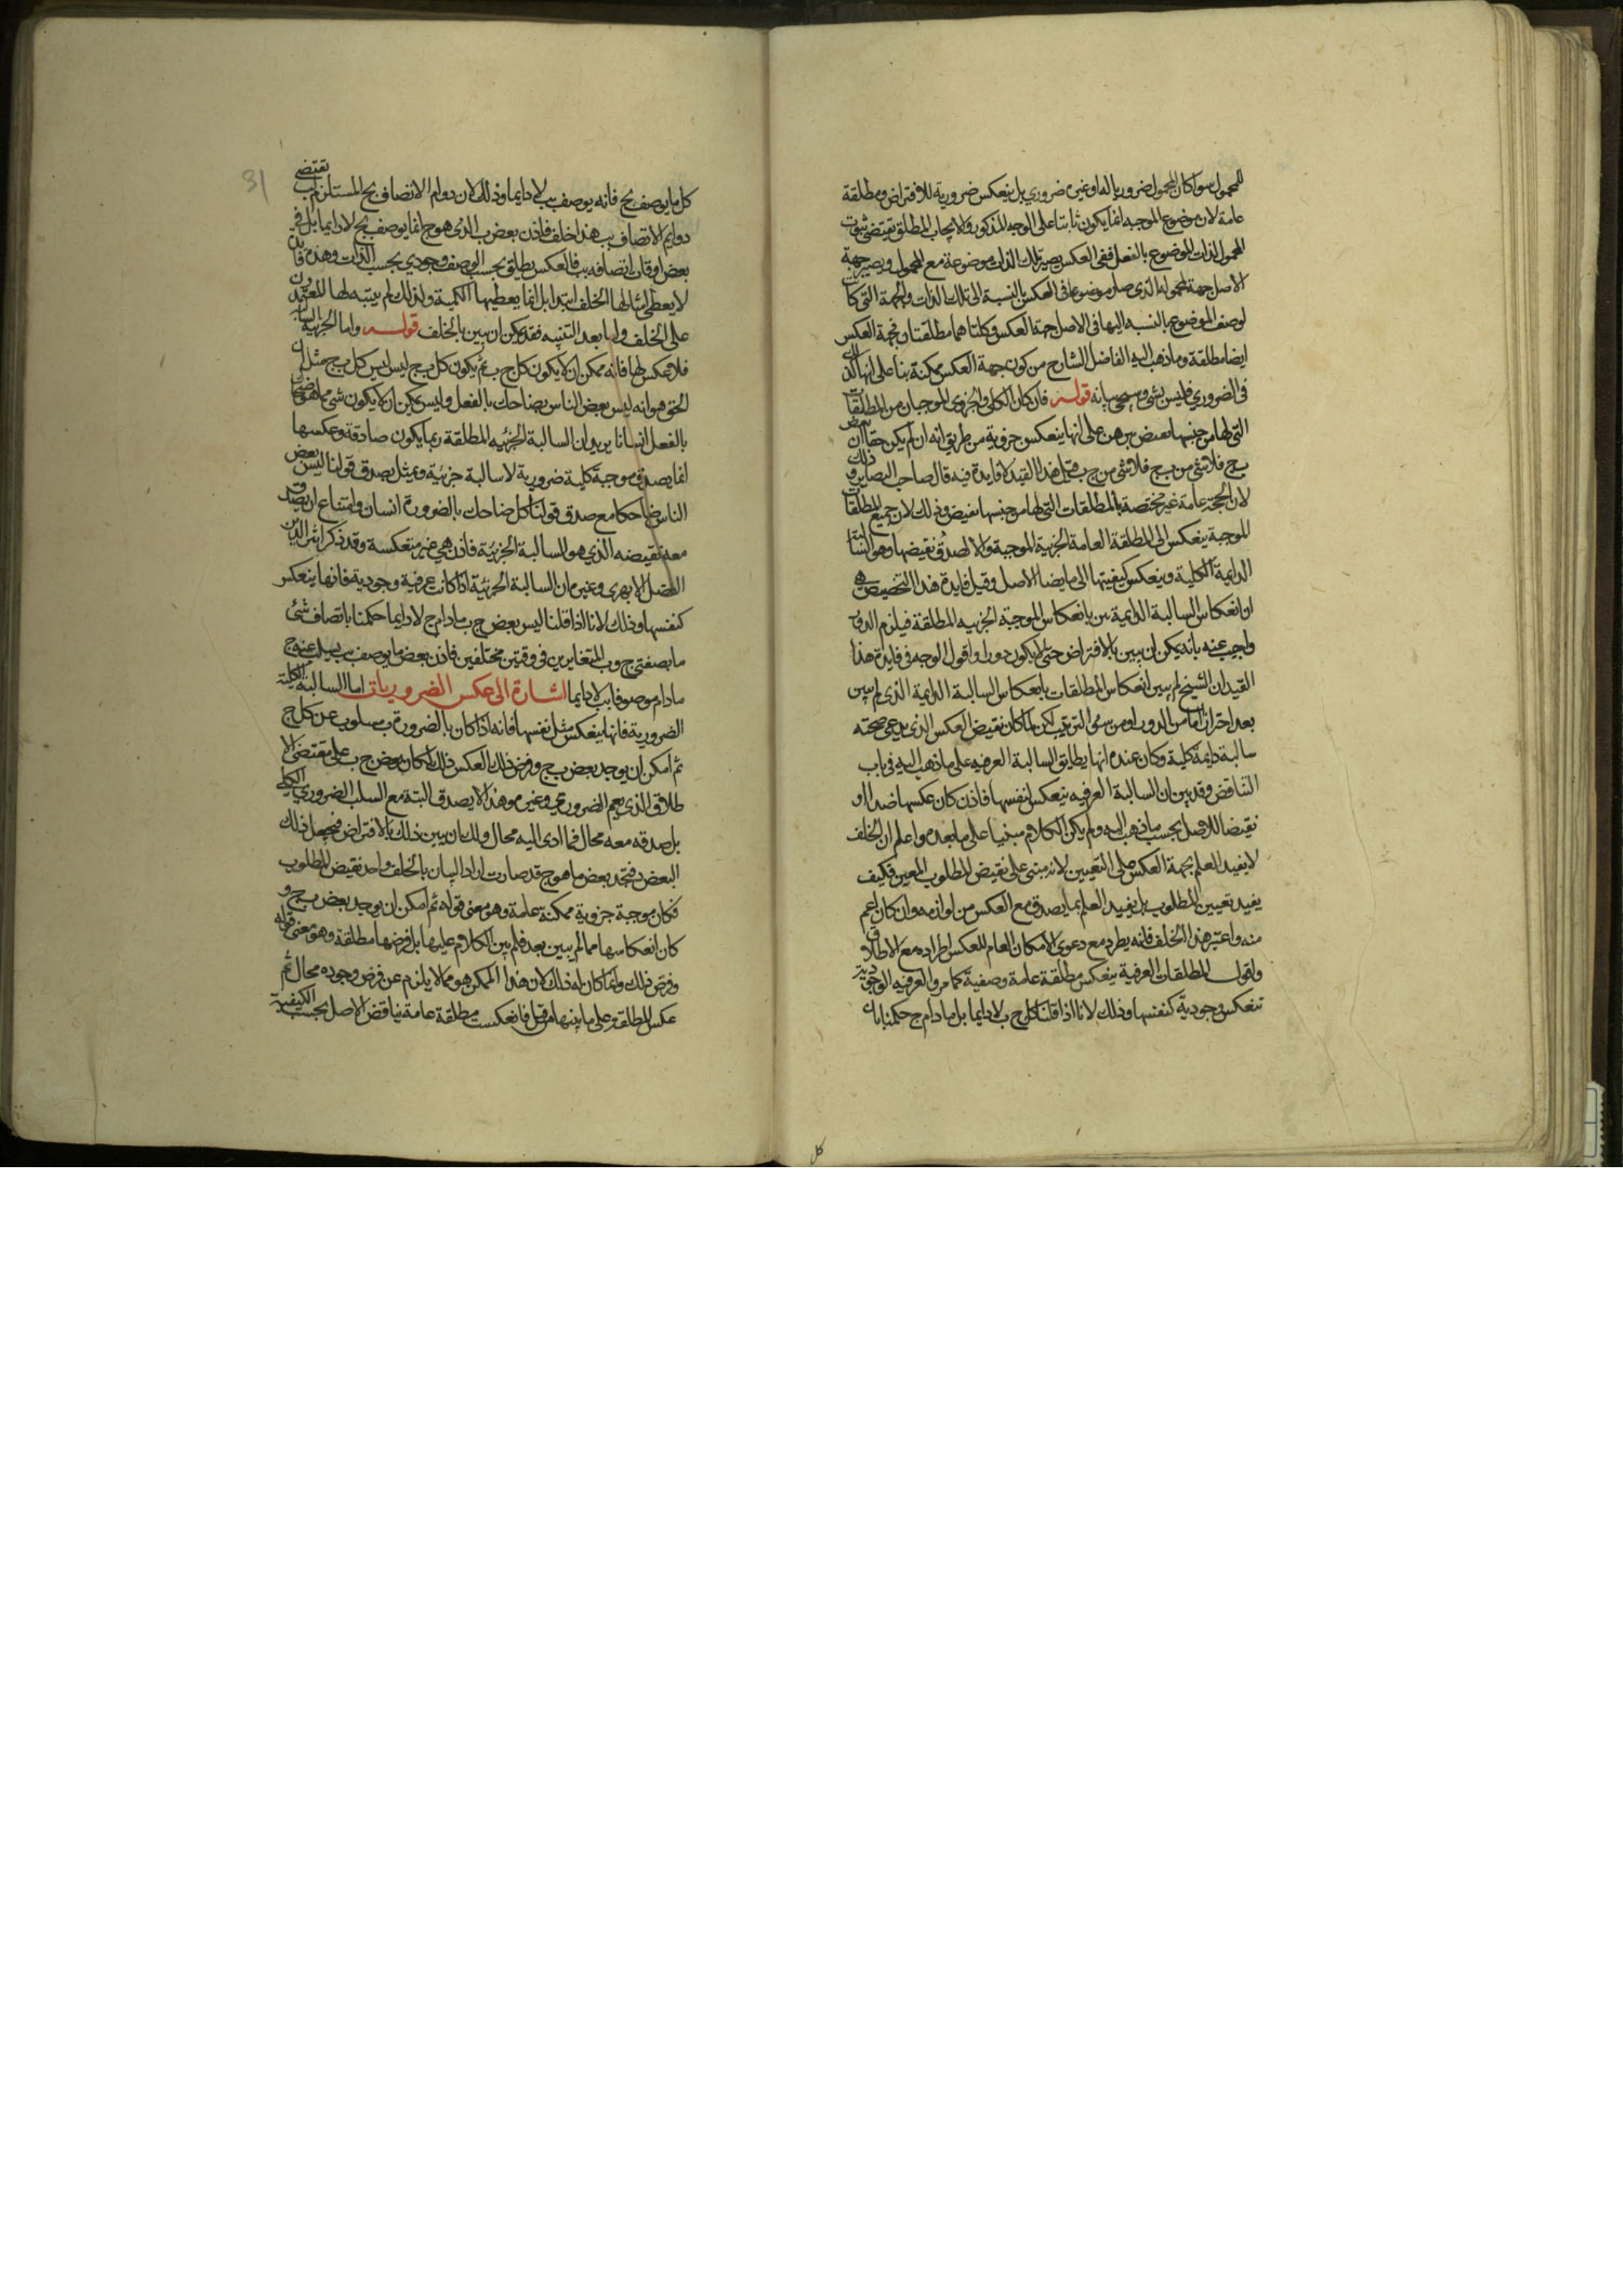 للمحمول سوا كان المحمول ضروريا له او غير ضروري بل ينعكس ضرورية للافتراض ومطلقة
عامة لان موضوع الموجبه انما يكون ثابتا على الوجه المذكور والايجاب المطلق يقتضى ثبوت
المحمول لذات الموضوع بالفعل ففى العكس يصير تلك الذات موضوعة مع المحمول ويصير جهة
الاصل جهة للمحمول الذى صار موضوعا فى العكس بالنسبة الى تلك الذات والجهة التى كانت
لوصف الموضوع بالنسبه اليها فى الاصل جهة العكس وكلتاهما مطلقتان فجهة العكس
ايضا مطلقة وما ذهب اليه الفاضل الشارح من كون جهة العكس ممكنة بناء على انها كذلك
فى الضروري فليس بشى وسيجى بيانه قوله فان كان الكلى والجزوى الموجبان من المطلقات
التى لها من جنسها نقيض برهن على انها ينعكس جزوية من طريق انه ان لم يكن حقا ان بعض
ب ج فلا شى من ب ج فلا شى من ج ب قيل هذا القيد لا فايدة فيه قال صاحب البصاير وذلك
لان الحجة عامة غير مختصة بالمطلقات التى لها من جنسها نقيض وذلك لان جميع المطلقات
الموجبة ينعكس الى المطلقة العامة الجزية الموجبة والا لصدق نقيضها وهو السالبة
الدايمة الكلية وينعكس كيفيتها الى ما يضاد الاصل وقيل فايدة هذا التخصيص هى
ان انعكاس السالبة الدايمية بين بانعكاس الموجبة الجزييه المطلقة فيلزم الدور
واجيب عنه بانه يمكن ان يبين بالافتراض حتى لا يكون دورا واقول الوجه فى فايدة هذا
القيد ان الشيخ لم يبين انعكاس المطلقات بانعكاس السالبة الدايمة الذى لم يبين
بعد احترازا اما من الدور او من سوى الترتيب لكن لما كان نقيض العكس الذى يدعى صحته
سالبة دايمة كلية وكان عنده انها يطابق السالبة العرفيه على ما ذهب اليه فى باب
التناقض وقد بين ان السالبة العرفيه ينعكس لنفسها فاذن كان عكسها ضدا او
نقيضا للاصل بحسب ما ذهب اليه ولم يكن الكلام مبنيا على ما بعده واعلم ان الخلف
لا يفيد العلم بجهة العكس على التعيين لانه مبنى على نقيض المطلوب المعين فكيف
يفيد تعيين المطلوب بل يفيد العلم بما يصدق مع العكس من لوازمه وان كان اعم
منه واعتبر هذا الخلف فانه يطرد مع دعوى الامكان العام للعكس اطراده مع الاطلاق
ولنقول المطلقات العرفية ينعكس مطلقة عامة وصفية كما مر والعرفيه الوجودية
تنعكس وجودية كنفسها وذلك لانا اذا قلنا كل ج ب لا دايما بل ما دام ج حكمنا بان
كل
31
كل ما يوصف بج فانه يوصف بب لا دايما وذلك لان دوام الاتصاف بج المستلزم لب يقتضى
دوام الاتصاف بب هذا خلف فاذن بعض ب الذى هو ج انما يوصف بج لا دايما بل فى
بعض اوقات اتصافه بب فالعكس يطلق بحسب الوصف وجودى بحسب الذات وهذه فايدة
لا يعطى امثالها الخلف ابتدا بل انما يعطيها الكلية ولذلك لم يتنبه لها المعتمدون
على الخلف واما بعد التنبيه فقد يمكن ان يبين بالخلف قوله واما الجزيية السالبة
فلا عكس لها فانه ممكن ان لا يكون كل ج ب ثم يكون كل ب ج ليس ليس كل ب ج مثل ان
الحق هو انه ليس بعض الناس بضاحك بالفعل وليس يمكن ان لا يكون شى مما هو ضحاك
بالفعل انسانا يريد ان السالبة الجزئيه المطلقة ربما يكون صادقة وعكسها
انما يصدق موجبة كلية ضرورية لا سالبة جزئية وتمثل بصدق قولنا ليس بعض
الناس ضاحكا مع صدق قولنا كل ضاحك بالضرورة انسان وامتناع ان يصدق
معه نقيضه الذي هو السالبة الجزئية فاذن هى غير منعكسة وقد ذكر اثير الدين
المفضل الابهرى وغيره ان السالبة الجزئية اذا كانت عرفية وجودية فانها ينعكس
كنفسها وذلك لانا اذا قلنا ليس بعض ج ب ما دام ج لا دايما حكمنا باتصاف شئ
ما بصفتى ج وب المتغايرين فى وقتين مختلفين فاذن بعض ما يوصف بب يسلب عنه ج
ما دام موصوفا بب لا دايما اشارة الى عكس الضروريات اما السالبة الكلية
الضرورية فانها ينعكس مثل نفسها فانه اذا كان بالضرورة ب مسلوب عن كل ج
ثم امكن ان يوجد بعض ب ج وفرض ذلك بالعكس ذلك لكان بعض ج ب على مقتضى الا
طلاق الذى يعم الضرورى وغيره وهذا لا يصدق البتة مع السلب الضروري الكلى
بل صدقه معه محال فما ادى اليه محال ولك ان يبين ذلك بالافتراض فيجعل ذلك
البعض د فتجد بعض ما هو ج قد صار ب اراد البيان بالخلف واخذ نقيض المطلوب
فكان موجبة جزوية ممكنة عامة وهو معنى قوله ثم امكن ان يوجد بعض ب ج و
كان انعكاسها مما لم يبين بعد فلم يبن الكلام عليها بل فرضها مطلقة وهو معنى قوله
وفرض ذلك وانما كان له ذلك لان هذا الممكن هو مما لا يلزم عن فرض وجوده محال ثم
عكس المطلقة على ما بينها من قبل فانعكست مطلقة عامة تناقض الاصل بحسب الكيفية